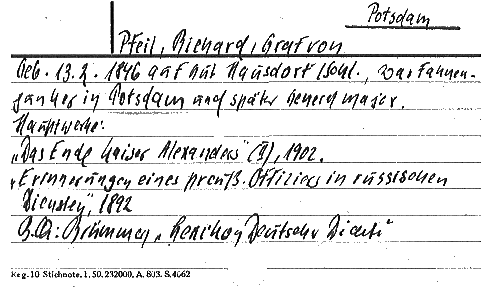 Potsdam
Pfeil, Richard, Graf von
Geb. 13.2. 1846 auf Gut Hausdorf Schl., war Fahnen-
junker in Potsdam und später Generalmajor.
Hauptwerke:
„Das Ende Kaiser Alexanders" (II), 1902.
„Erinnerungen eines preuß. Offiziers in russischen
Diensten", 1892
Brümmer, „Lexikon Deutscher Dicht."
Reg. 10 Stichnote. 1. 50. 232000, A. 803. S. 4062